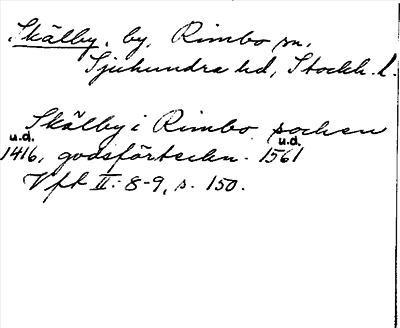 Skälby, by, Rimbo sn,
Sjuhundra hd, Stockh. l.
Skälby i Rimbo socken
u.d. u.d.
1416, godsförteckn. 1561
Vft II: 8-9, s. 150.